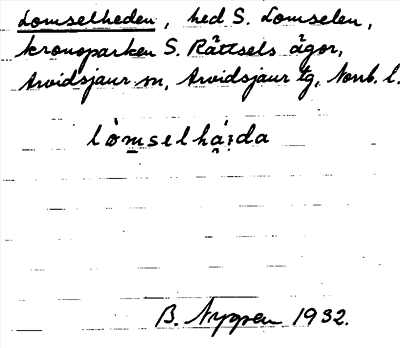 Lomselheden, hed S. Lomselen,
kronoparken S. Rättsels ägor,
Arvidsjaur sn, Arvidsjaur tg, Norrb. l.
lòmselhá̤i:da
B. Nygren 1932.